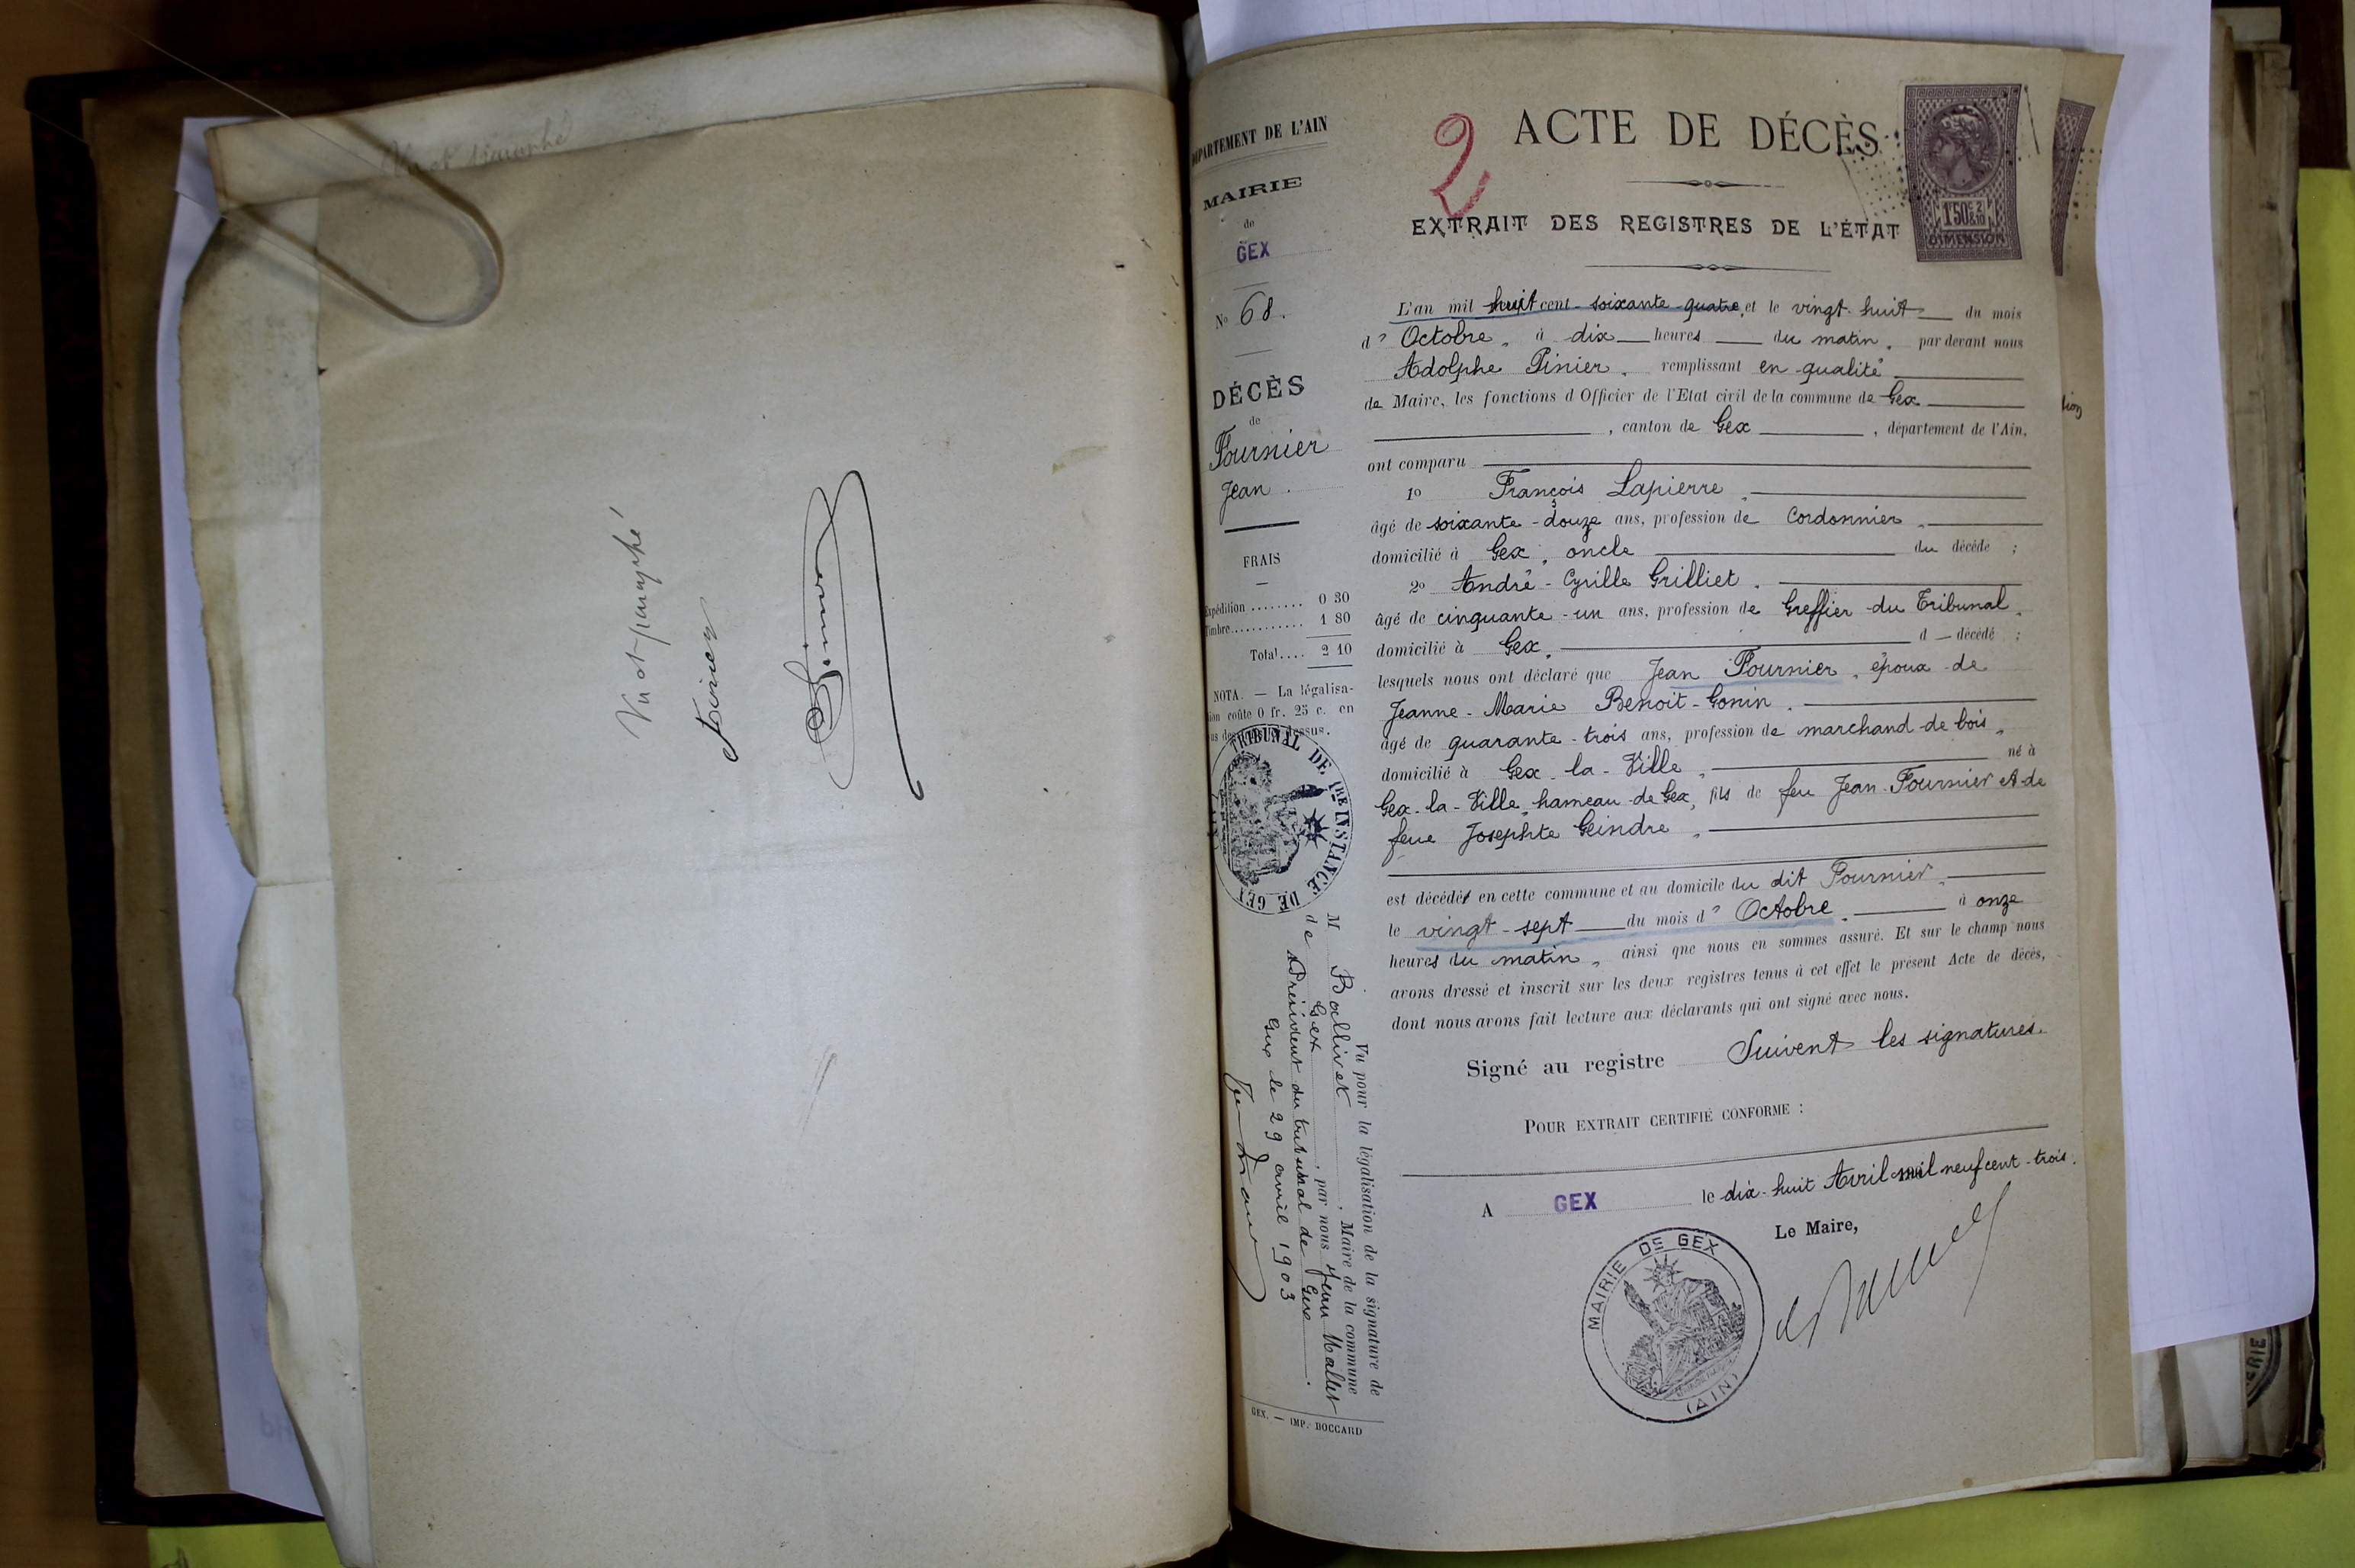 Vu et paraphé
Vu et paraphé
DÉPARTEMENT DE L'AIN
MAIRIE
de
GEX
No 68.
DÉCÈS
de
Fournier
Jean
FRAIS
Expédition ........ 0 30
Timbre............ 1 80
Total.... 2 10
NOTA. — La légalisa-
tion coûte 0 fr. 25 c. en
sus de dessus.
TRIBUNAL DE 1RE INSTANCE DE GEX
Vu pour la légalisation de la signature de
M Bollivet, Maire de la commune
de Gex, par nous Jean Mallet
Président du tribunal de Gex
Gex le 29 avril 1903
GEX. — IMP. BOCCARD
2
ACTE DE DÉCÈS
1F50C 2/10
DIMENSION
EXTRAIT DES REGISTRES DE L'ÉTAT
L'an mil huit cent soixante-quatre, et le vingt-huit du mois
d'Octobre, à dix heures du matin, par devant nous
Adolphe Pinier, remplissant en qualité
de Maire, les fonctions d'Officier de l'Etat civil de la commune de Gex
, canton de Gex, département de l'Ain,
ont comparu
1o François Lapierre,
âgé de soixante-douze ans, profession de Cordonnier,
domicilié à Gex, oncle du décédé ;
2o André-Cyrille Grilliet,
âgé de cinquante-un ans, profession de Greffier du Tribunal,
domicilié à Gex, d — décédé ;
lesquels nous ont déclaré que Jean Fournier, époux de
Jeanne-Marie Benoit-Gonin,
âgé de quarante-trois ans, profession de marchand de bois,
domicilié à Gex-la-Ville, né à
Gex-la-Ville, hameau de Gex, fils de feu Jean Fournier et de
feue Josephte Geindre,
est décédé en cette commune et au domicile du dit Fournier,
le vingt-sept du mois d'Octobre, à onze
heures du matin, ainsi que nous en sommes assuré. Et sur le champ nous
avons dressé et inscrit sur les deux registres tenus à cet effet le présent Acte de décès,
dont nous avons fait lecture aux déclarants qui ont signé avec nous.
Signé au registre Suivent les signatures.
POUR EXTRAIT CERTIFIÉ CONFORME :
A GEX le dix-huit Avril mil neuf cent-trois.
Le Maire,
MAIRIE DE GEX
(AIN)